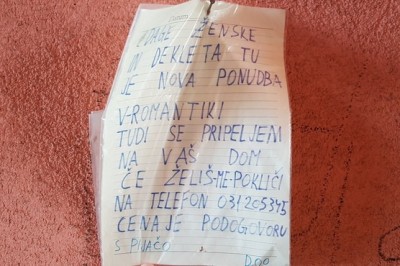 DRAGE ŽENSKE
IN DEKLETA TU
JE NOVA PONUDBA
V-ROMANTIKI
TUDI SE PRIPELJEM
NA VAŠ DOM
ČE ŽELIŠ-ME-POKLIČI
NA TELEFON 031205345
CENA JE PODOGOVORU